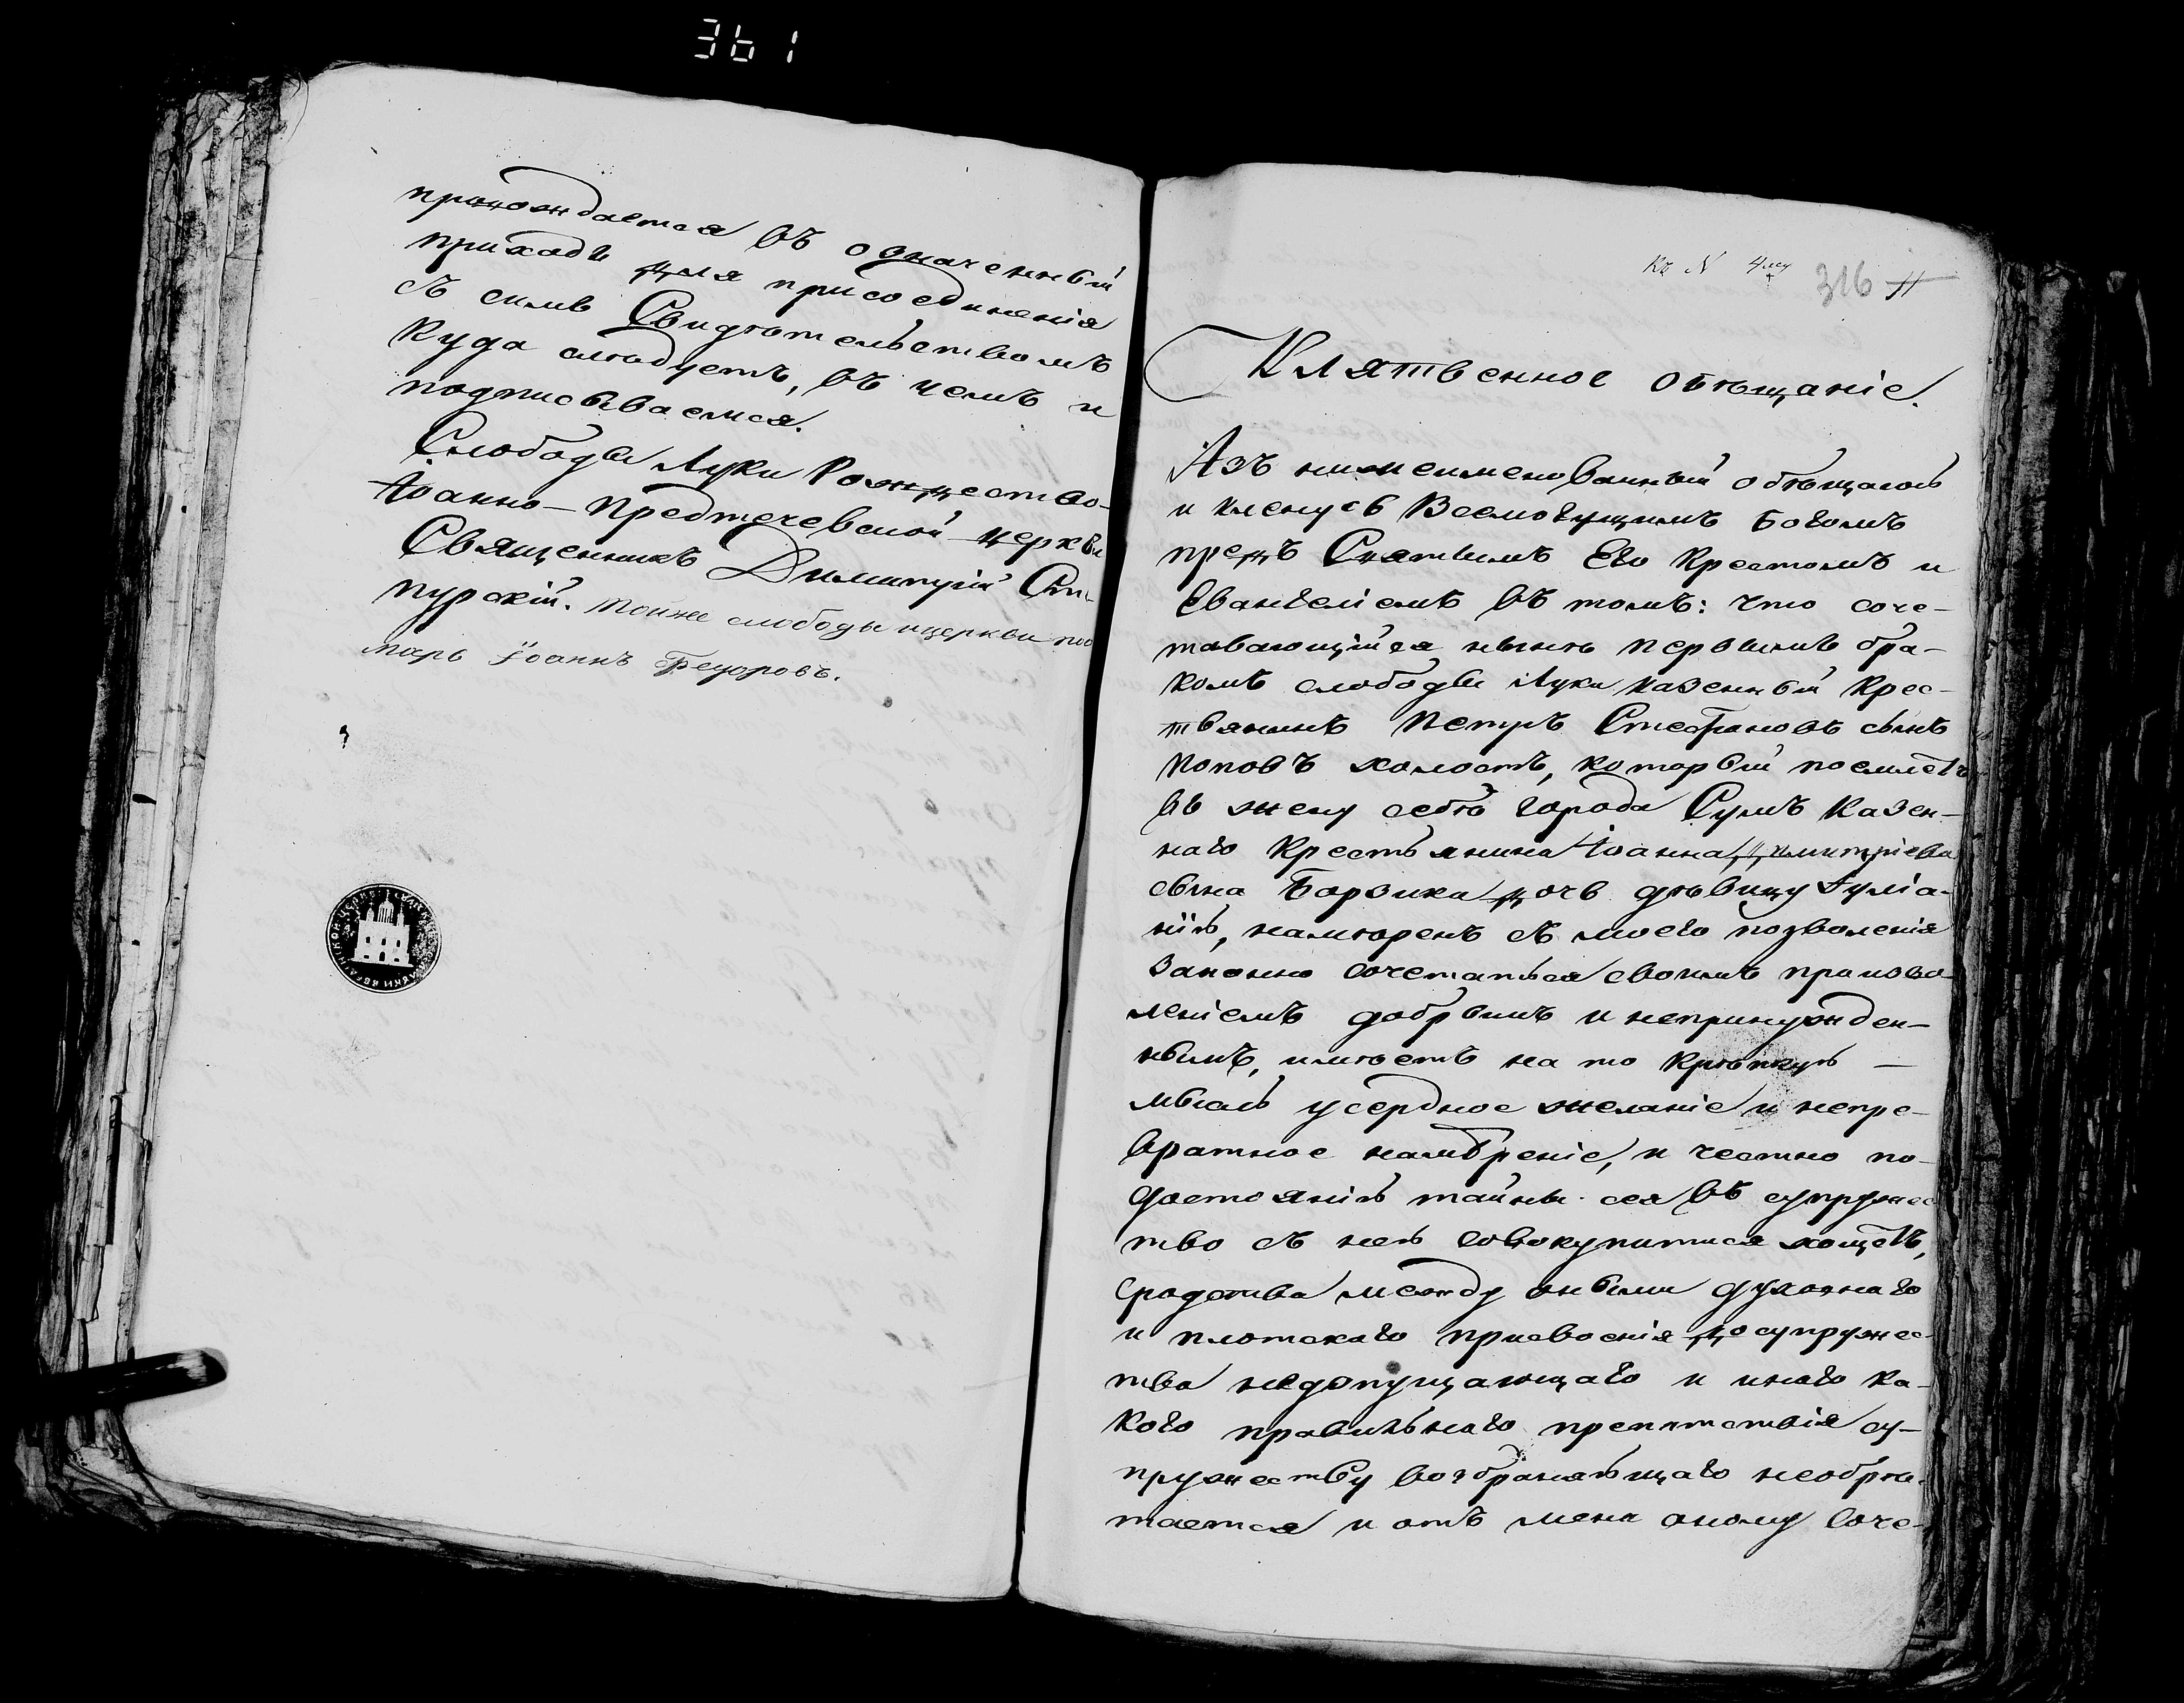 361
препровождается въ означенный
приходъ для присоединенія
съ симъ Свидѣтельствомъ
куда слѣдуетъ, въ чемъ и
подписываемся.
Слободы Луки Рождество-
Іоанно-Предтечевской церкви
Священникъ Димитрій
пурскій. Той же слободы и церкви поно
марь Іоаннъ Федоровъ.
Къ N 4му 316 11
Клятвенное обѣщаніе.
Азъ нижеименованный обѣщаюсь
и кленусь Всемогущимъ Богомъ
предъ Святымъ Его Крестомъ и
Евангеліемъ въ томъ: что соче-
тавающійся нынѣ первымъ бра-
комъ слободы Луки казенный крес-
тьянинъ Петръ Стефановъ сынъ
Поповъ холостъ, который поемлетъ
въ жену себѣ города Сумъ казен-
наго крестьянина Іоанна Димитріева
сына Борзика дочь дѣвицу Іуліа-
нію, намѣренъ съ моего позволенія
законно сочетаться своимъ произво
леніемъ добрымъ и непринужден-
нымъ, имѣетъ на то крѣпкую —
мысль усердное желаніе и непре-
вратное намѣреніе, и честно по-
достоянію тайны сея въ супружес
тво съ нею совокупитися хощетъ,
сродства между оными духовнаго
и плотскаго присвоенія до супружес-
тва недопущающаго и инаго ка-
кого правильнаго препятствія су-
пружеству возбраняющаго необрѣ-
тается и отъ мене оному соче-